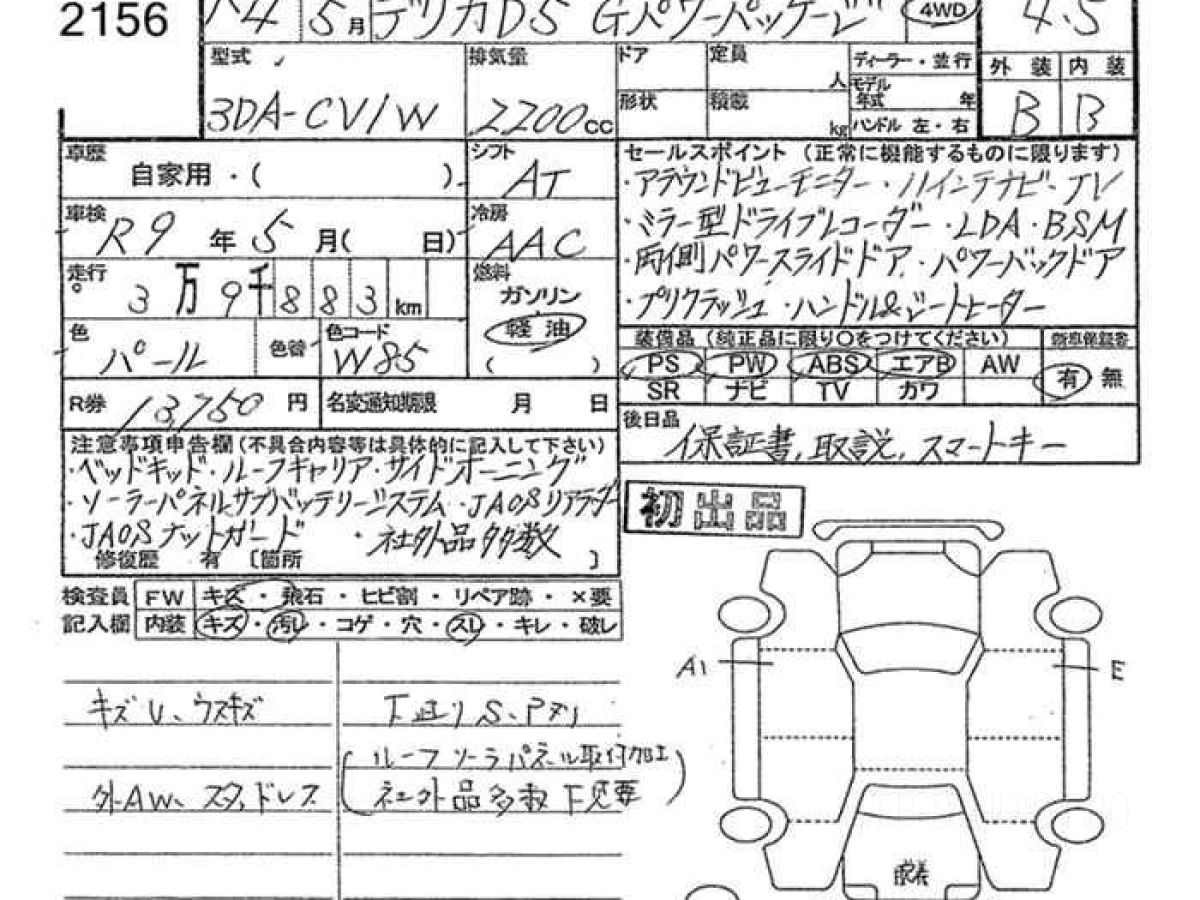 2156
4 5月 デリカD5 Gパワーパッケージ 4WD 4.5
型式 排気量 ドア 定員 ディーラー・並行 外装 内装
人 モデル年式 年
3DA-CV1W 2200cc 形状 積載 kg ハンドル 左・右 B B
車歴 自家用・( ) シフト AT
セールスポイント (正常に機能するものに限ります)
・アラウンドビューモニター・10インチナビ・TV
車検 R9年5月( 日) 冷房 AAC
・ミラー型ドライブレコーダー・LDA・BSM
・両側パワースライドドア・パワーバックドア
走行 3万9千883km 燃料 ガソリン 軽油 ( )
・プリクラッシュ・ハンドル&シートヒーター
色 パール 色替 色コード W85
装備品 (純正品に限り○をつけてください) 新車保証書
PS PW ABS エアB AW 有 無
SR ナビ TV カワ
R券 13,750円 名変通知期限 月 日
後日品 保証書, 取説, スマートキー
注意事項申告欄(不具合内容等は具体的に記入して下さい)
・ベッドキット・ルーフキャリア・サイドオーニング
・ソーラーパネルサブバッテリーシステム・JAOSリアラダー
・JAOSナットガード ・社外品多数
修復歴 有 [箇所 ]
初出品
検査員記入欄 FW キズ・飛石・ヒビ割・リペア跡・×要
内装 キズ・汚レ・コゲ・穴・スレ・キレ・破レ
A1 E
キズU、ウスキズ 下廻りS、Pヌリ
(ルーフソーラパネル取付加工
外AW、スタッドレス 社外品多数 下見要)